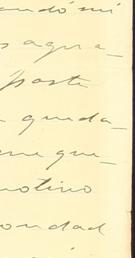 andó mi
s agra-
poste
a queda-
me que-
motivo
ondad